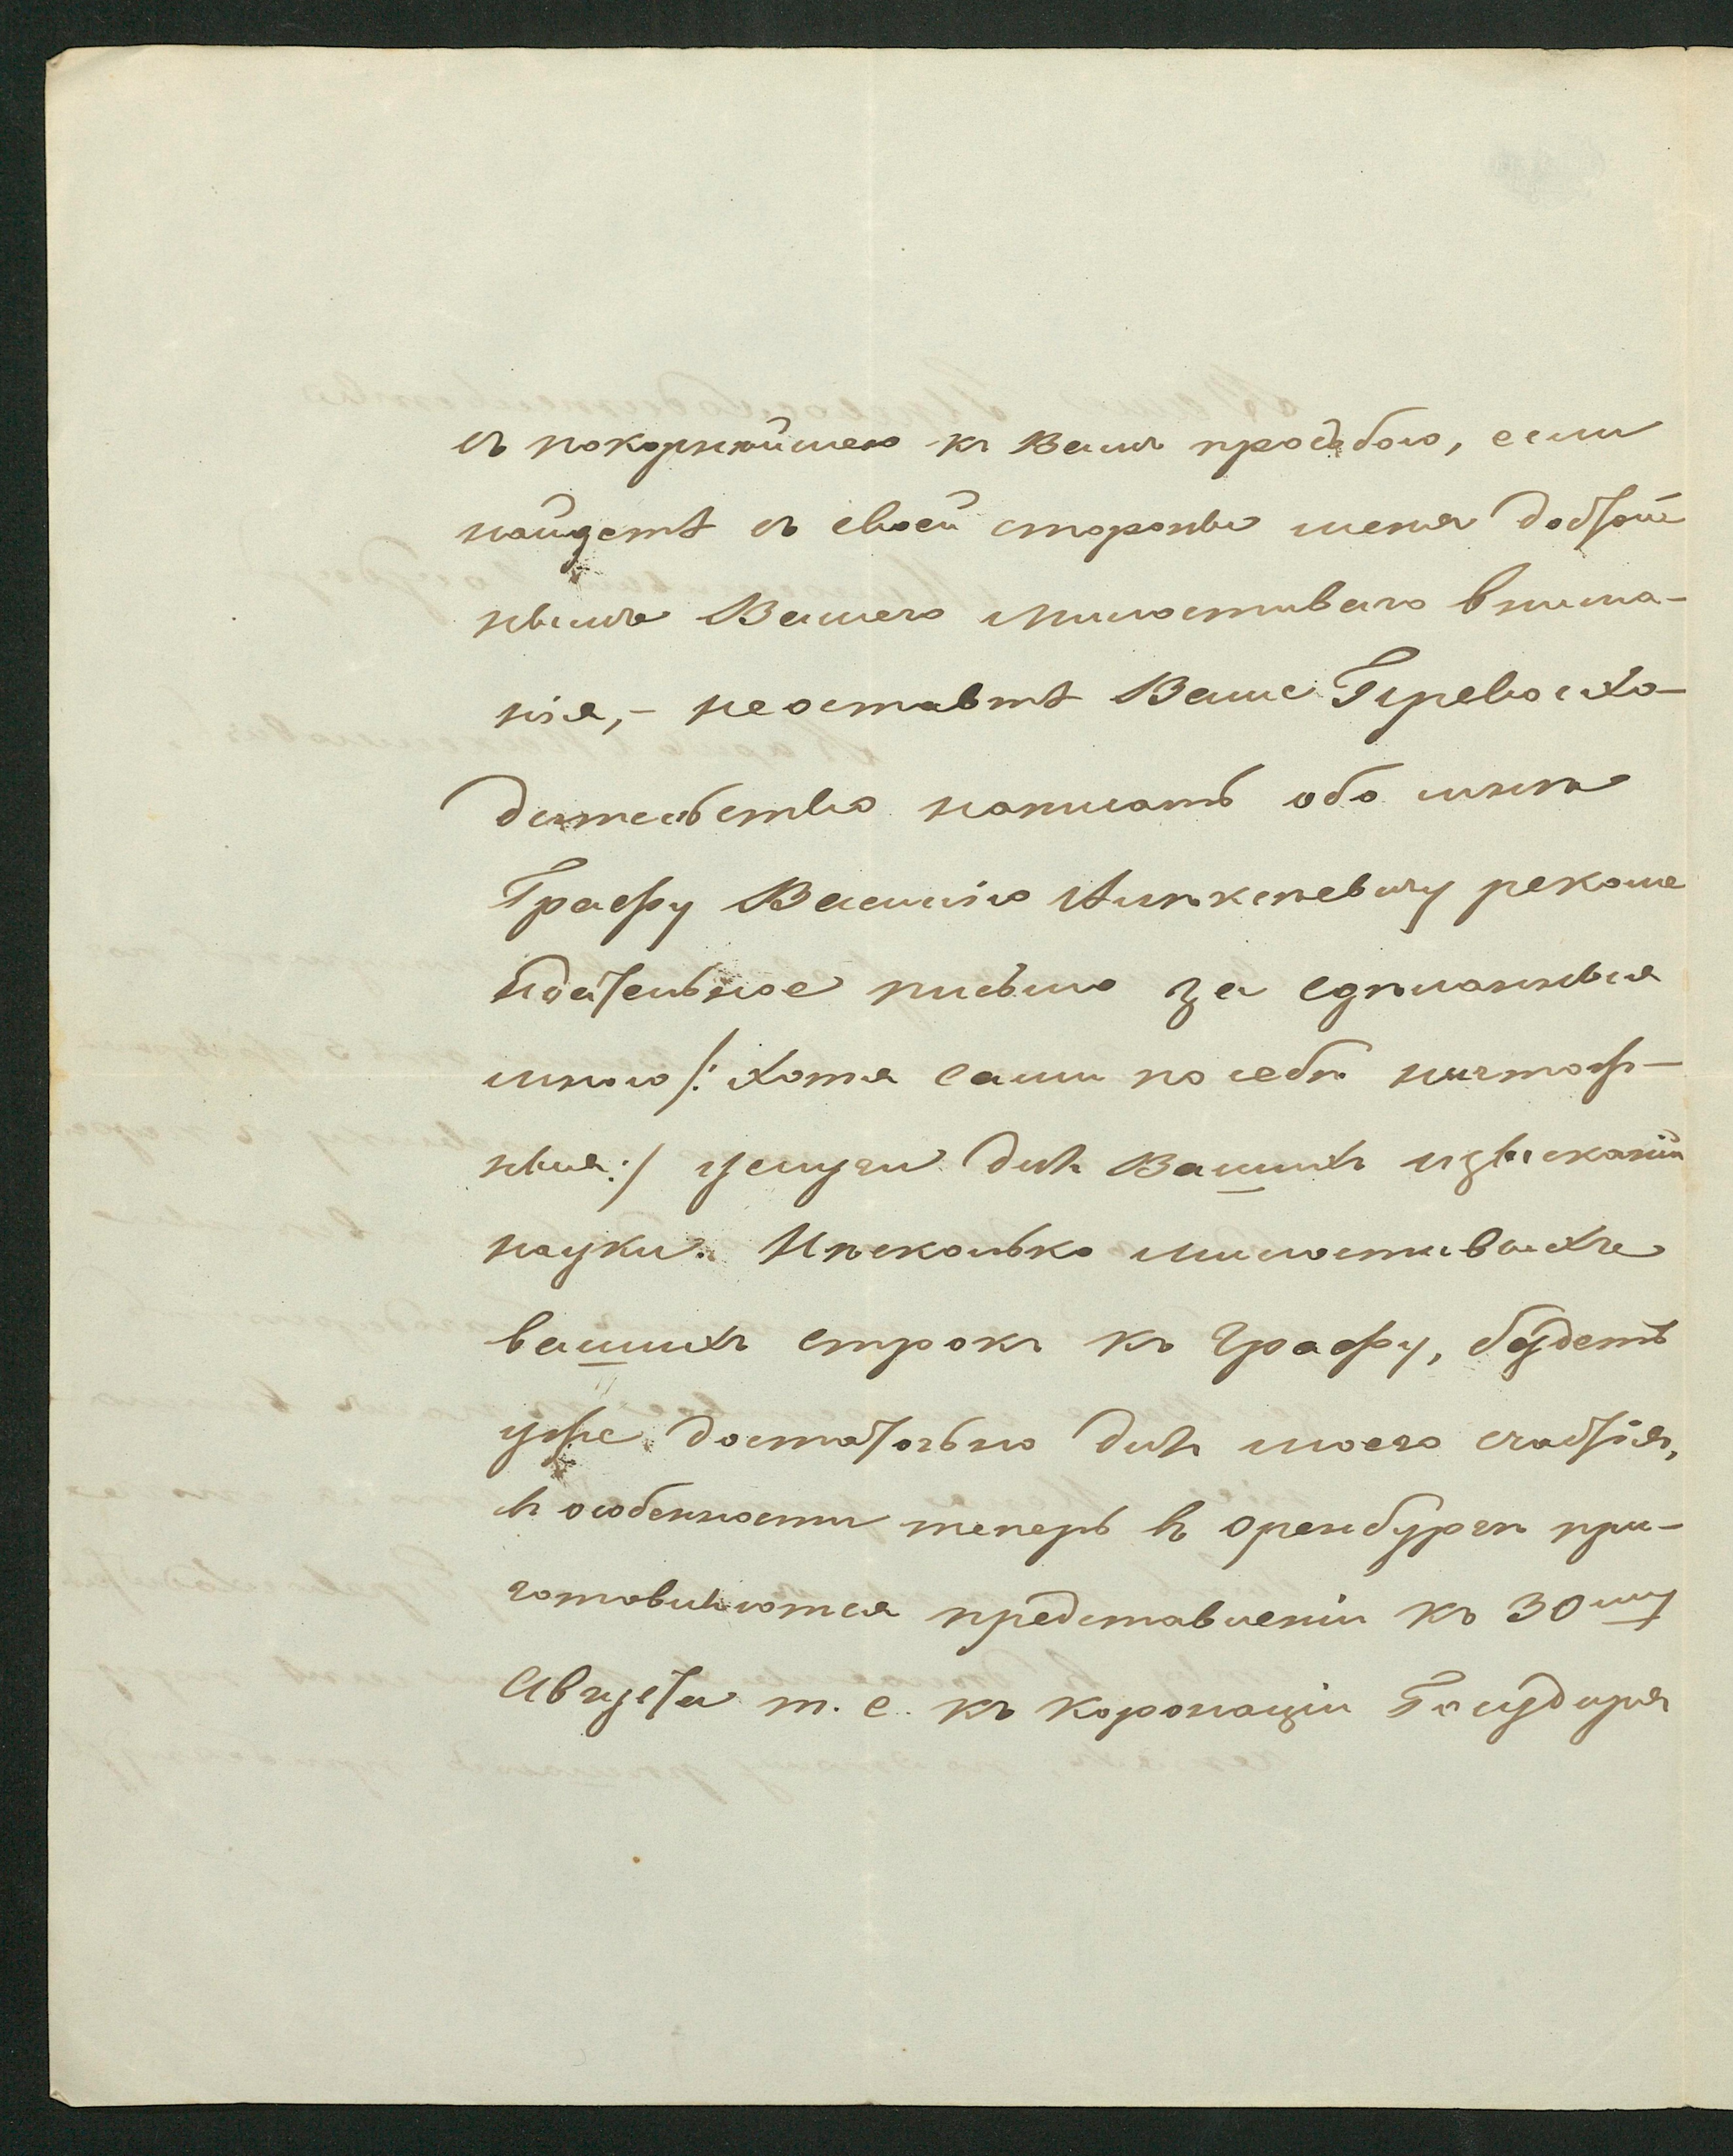 съ покорнѣйшею къ Вамъ прозьбою, если
найдетѣ съ своей стороны меня достой
нымъ Вашего милостиваго внима-
нія, - неоставтѣ Ваше Превосхо-
дительство написать обо мнѣ
Графу Василію Алѣксѣевичу рекоме
ндательное письмо за сдѣланныя
мною /: хотя сами по себѣ ничтож-
ныя :/ услуги для Вашихъ изысканій
науки. Нѣсколько милостивыхъ
вашихъ строкъ къ Графу, будетъ
уже достаточьно для моего счастія,
въ особенности теперь въ Оренбургѣ при-
готовляются представленіи къ 30му
Августа т. е. къ коронаціи Государя